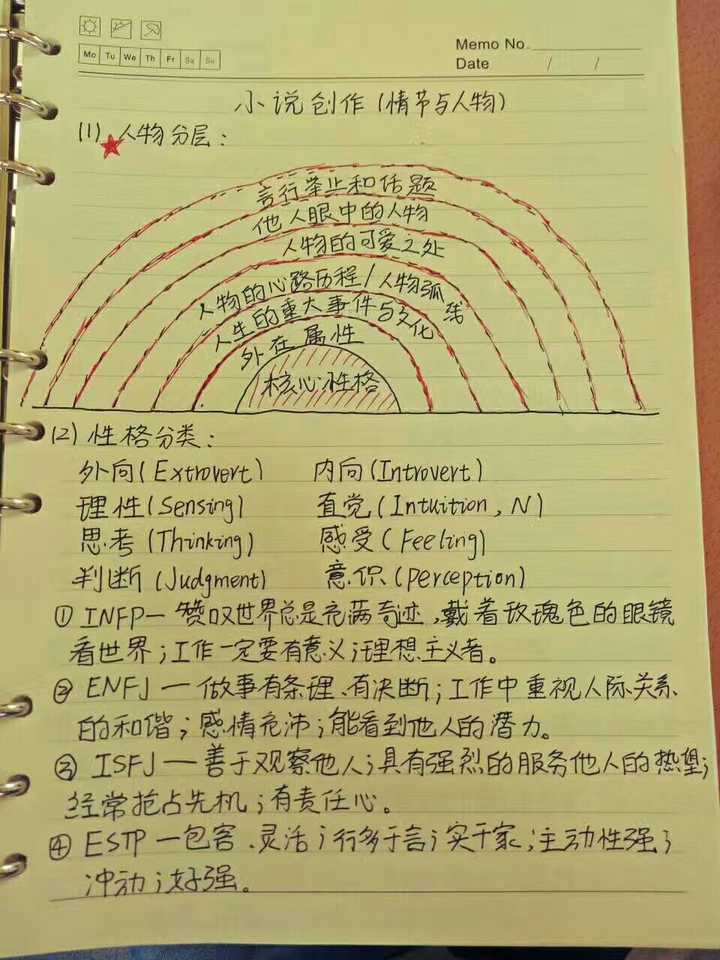 Memo No.
Mo Tu We Th Fr Sa Su
Date / /
小说创作(情节与人物)
(1) ★人物分层:
言行举止和话题
他人眼中的人物
人物的可爱之处
人物的心路历程/人物弧线
人生的重大事件与文化
外在属性
核心性格
(2) 性格分类:
外向(Extrovert) 内向(Introvert)
理性(Sensing) 直觉(Intuition, N)
思考(Thinking) 感受(Feeling)
判断(Judgment) 意识(perception)
① INFP—赞叹世界总是充满奇迹,戴着玫瑰色的眼镜
看世界;工作一定要有意义;理想主义者。
② ENFJ—做事有条理、有决断;工作中重视人际关系
的和谐;感情充沛;能看到他人的潜力。
③ ISFJ—善于观察他人;具有强烈的服务他人的热望;
经常抢占先机;有责任心。
④ ESTP—包容、灵活;行多于言;实干家;主动性强;
冲动;好强。